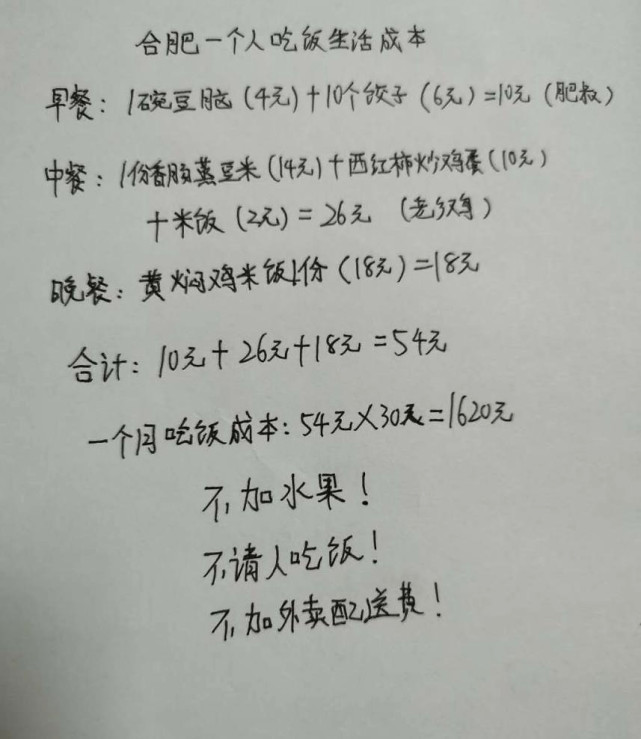 合肥一个人吃饭生活成本
早餐：1碗豆脑（4元）+10个饺子（6元）=10元（肥叔）
中餐：1份香肠蒸豆米（14元）+西红柿炒鸡蛋（10元）
+米饭（2元）=26元（老乡鸡）
晚餐：黄焖鸡米饭1份（18元）=18元
合计：10元+26元+18元=54元
一个月吃饭成本：54元×30天=1620元
不加水果！
不请人吃饭！
不加外卖配送费！